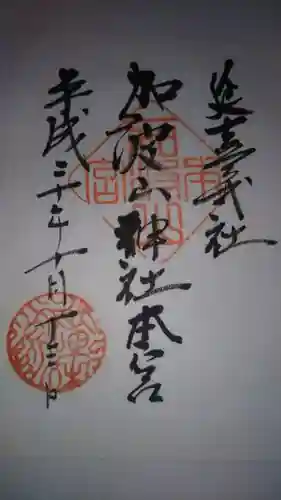 延喜式社
加波山神社本宮
平成三十年十月十三日